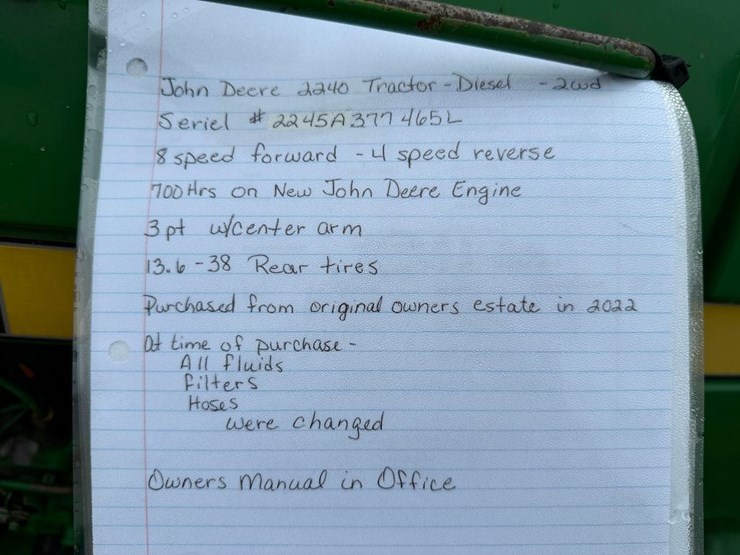 John Deere 2240 Tractor - Diesel - 2wd
Seriel # 2245A377465L
8 speed forward - 4 speed reverse
700 Hrs on New John Deere Engine
3 pt w/center arm
13.6-38 Rear tires
Purchased from original owners estate in 2022
At time of purchase -
All fluids
filters
Hoses
were changed
Owners Manual in Office